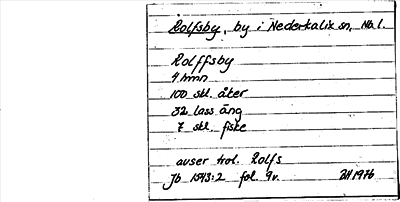 Rolfsby, by i Nederkalix sn, Nb l.
Rolffsby
4 hmn
100 skl. åker
32 lass äng
7 skl. fiske
avser trol. Rolfs
Jb 1543:2 fol. 9v. 1976